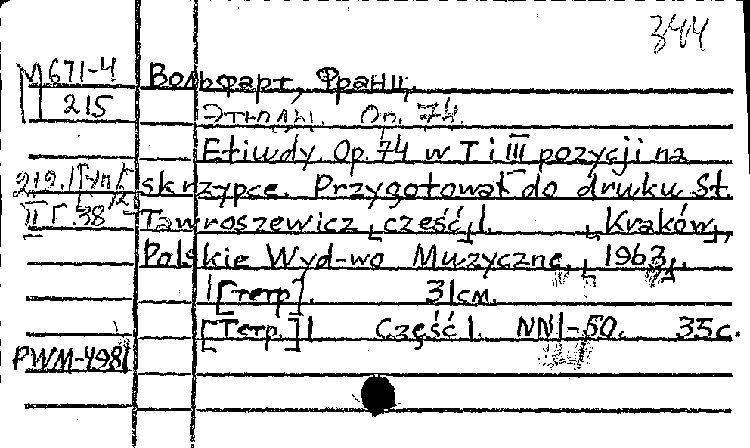 344
М671-4 Вольфарт, Франц.
215 Этюды. Ор. 74.
Etiudy Op. 74 w I i III pozycji na
skrzypce. Przygotował do druku St.
II Г. 38 Tawroszewicz, część 1. [Kraków],
Polskie Wyd-wo Muzyczne, [1963].
1 [тетр]. 31см.
[Тетр.] 1 Część 1. NN1-50. 35с.
PWM-4981